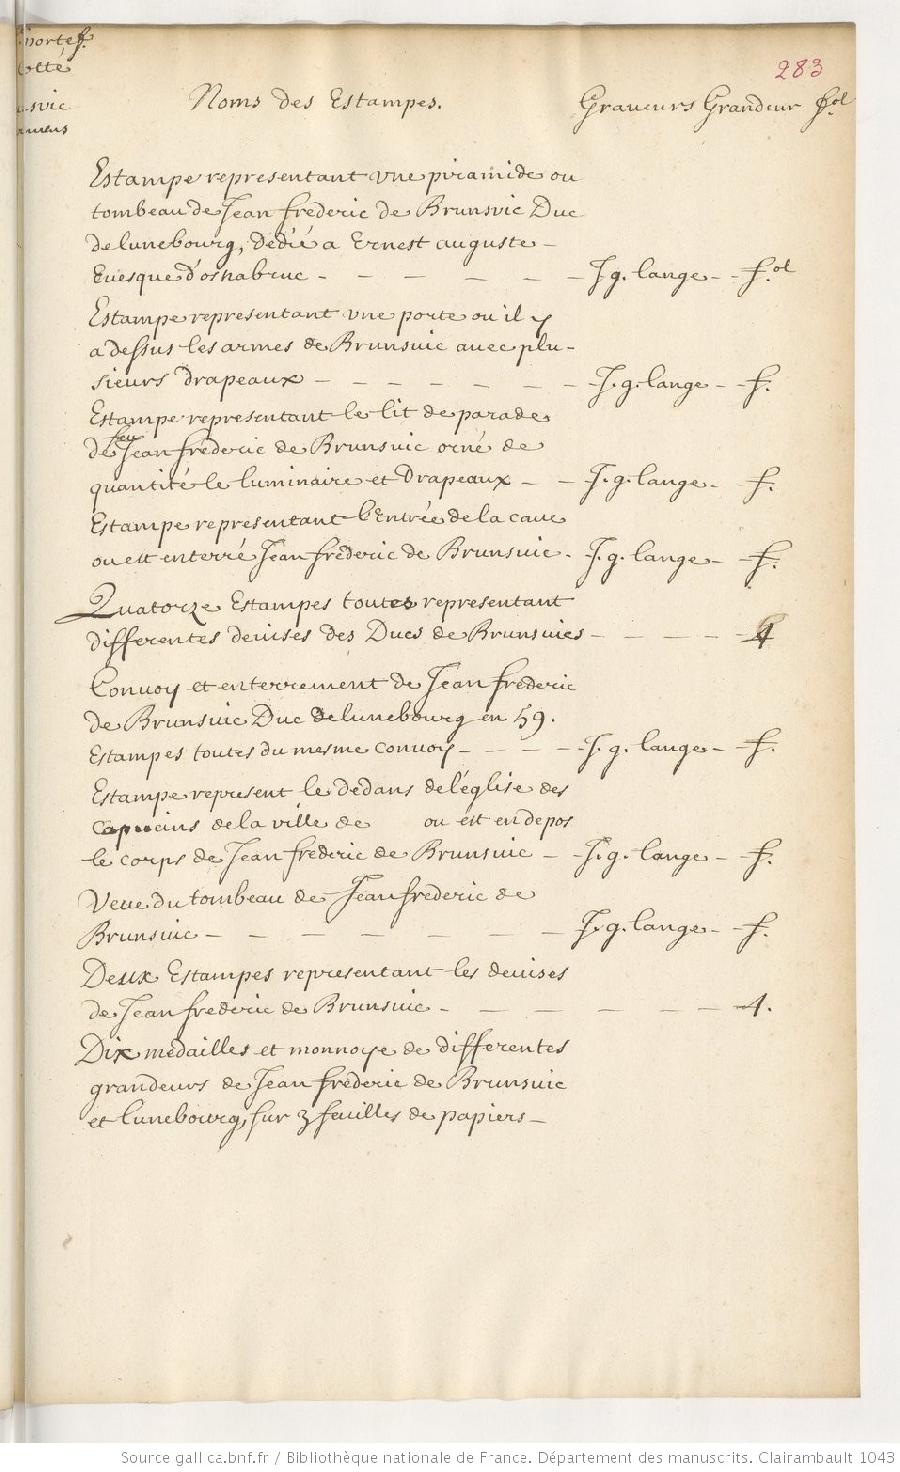 portef.
cotté
283
Noms des Estampes. Graveurs Grandeur fol
Estampe representant vne piramide ou
tombeau de Jean frederic de Brunsvic Duc
de lunebourg, dedié a Ernest auguste –
Euesque d'osnabruc – – – – – – J. g. lange – – f.ol
Estampe representant vne porte ou il y
a dessus les armes de Brunsuic auec plu-
sieurs drapeaux – – – – – – J. g. lange – f.
Estampe representant le lit de parade
de feu Jean frederic de Brunsuic orné de
quantité le luminaire et Drapeaux – – J. g. lange – f.
Estampe representant l'Entrée de la caue
ou est enterré Jean frederic de Brunsuic – J. g. lange – f.
Quatorze Estampes toutes representant
differentes deuises des Ducs de Brunsuics – – – – 4
Conuoy et enterrement de Jean frederic
de Brunsuic Duc de lunebourg en 59.
Estampes toutes du mesme conuoy – – – – J. g. lange – f.
Estampe represent le dedans de l'église des
capucins de la ville de ou est en depos
le corps de Jean frederic de Brunsuic – J. g. lange – f.
Veue du tombeau de Jean frederic de
Brunsuic – – – – – – – J. g. lange – f.
Deux Estampes representant les deuises
de Jean frederic de Brunsuic – – – – – – 4.
Dix medailles et monnoye de differentes
grandeurs de Jean frederic de Brunsuic
et lunebourg, sur 3 feuilles de papiers –
Source gallica.bnf.fr / Bibliothèque nationale de France. Département des manuscrits. Clairambault 1043